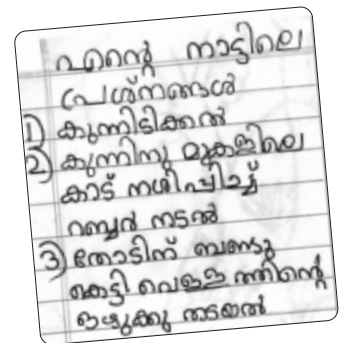 എന്റെ നാട്ടിലെ
പ്രശ്നങ്ങൾ
1) കുന്നിടിക്കൽ
2) കുന്നിനു മുകളിലെ
കാട് നശിപ്പിച്ച്
റബ്ബർ നടൽ
3) തോടിന് ബണ്ടു
കെട്ടി വെള്ളത്തിന്റെ
ഒഴുക്കു തടയൽ